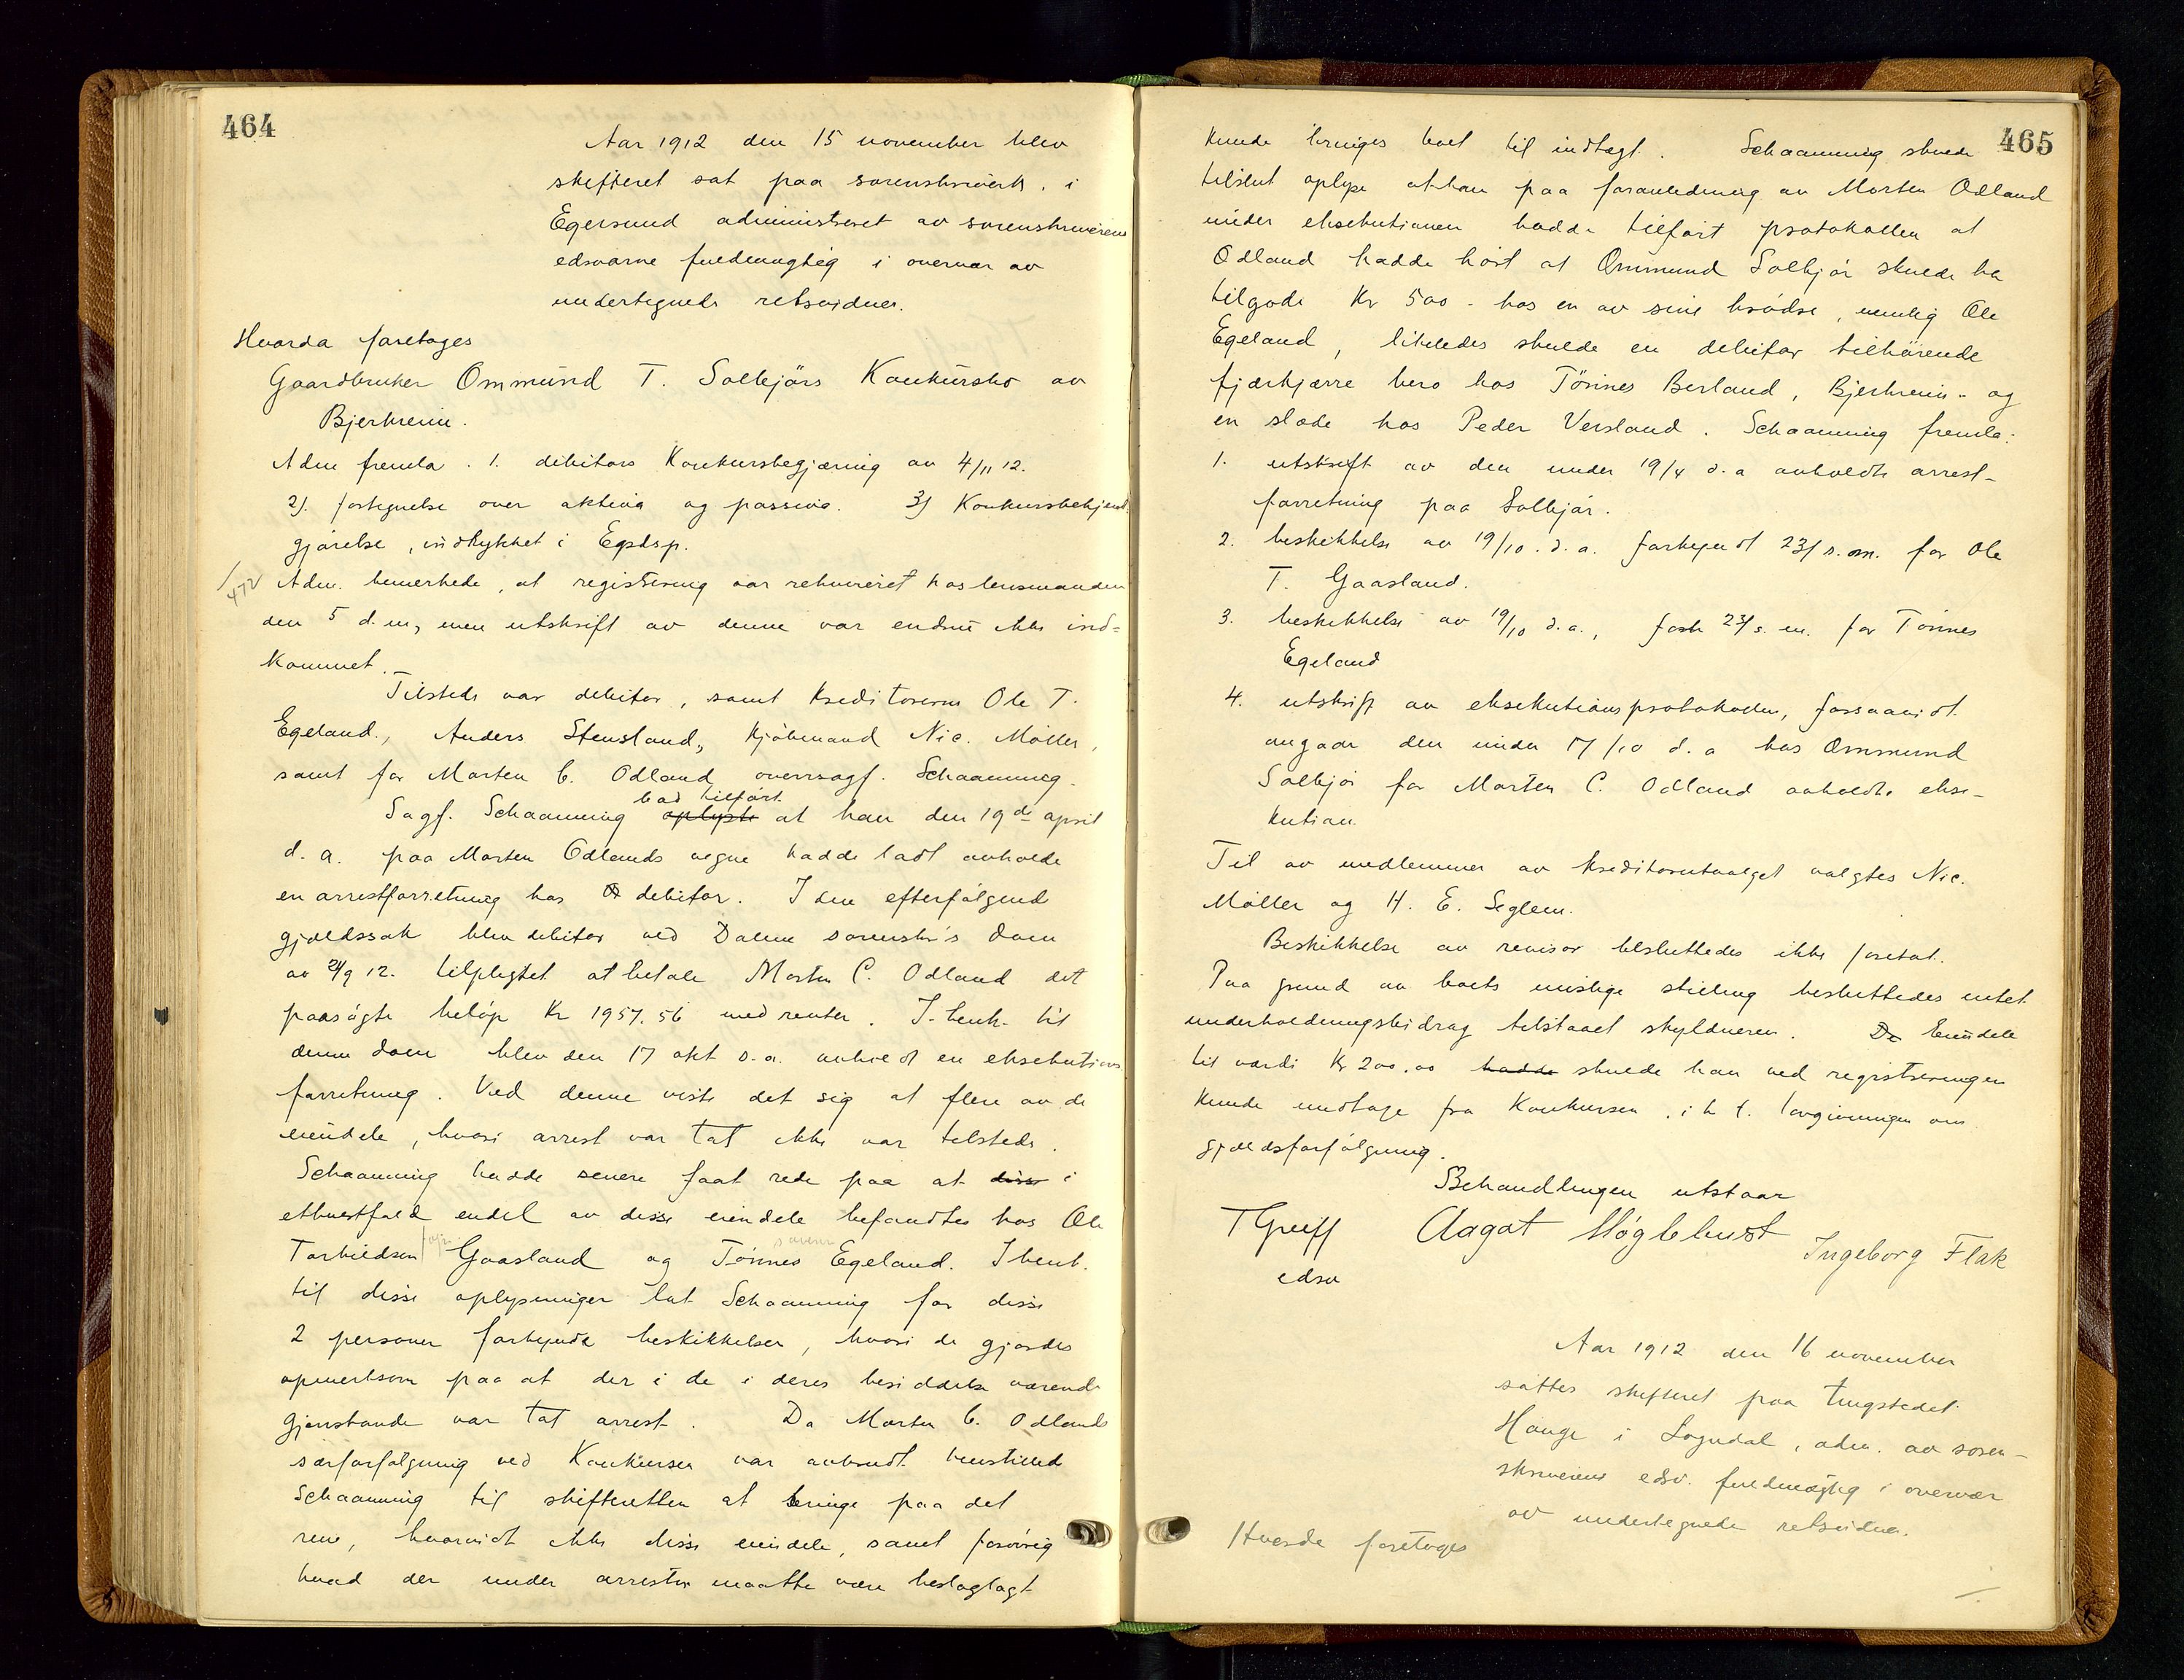 464
Aar 1912 den 15 november blev
skifteret sat paa sorenskriverk. i
Egersund administreret av sorenskriverens
edsvorne fuldmægtig i overvær av
undertegnede retsvidner.
Hvorda foretoges
Gaardbruker Ommund T. Solbjörs Konkursbo av
Bjerkreim.
Adm fremla. 1. debitors Konkursbegjæring av 4/11 12.
2). fortegnelse over aktiva og passiva. 3) Konkursbekjend
gjörelse, indrykket i Egdsp.
472 Adm. bemerkede, at registrering var rekvireret hos lensmanden
den 5 d.m, men utskrift av denne var endnu ikke ind=
kommet.
Tilstede var debitor, samt kreditorerne Ole T.
Egeland., Anders Stensland, kjöbmand Nic. Möller,
samt for Morten C. Odland overrsagf. Schaanning.
bad tilfört
Sagf. Schaanning oplyste at han den 19de april
d. a. paa Morten Odlands vegne hadde ladt avholde
en arrestforretning hos debitor. I den efterfölgend
gjældssak blev debitor ved Dalene sorenskr's dom
av 24/9 12. tilpligtet at betale Morten C. Odland det
paasögte belöp Kr 1957.56 med renter. I henh. til
denne dom blev den 17 okt d.a. avholdt en eksekutions
forretning. Ved denne viste det sig at flere av de
eiendele, hvori arrest var tat ikke var tilstede.
Schaanning hadde senere faat rede paa at disse i
ethvertfald endel av disse eiendele befandtes hos Ole
Torkildsen Gaasland og Tönnes Egeland. I henh.
til disse oplysninger lat Schaanning for disse
2 personer forkynde beskikkelser, hvori de gjordes
opmerksom paa at der i de i deres besiddelse værende
gjenstande var tat arrest. Da Morten C. Odlands
særforfölgning ved Konkursen var avbrudt henstilled
Schaanning til skifteretten at bringe paa det
rene, hvorvidt ikke disse eiendele, samt forövrig
hvad der under arresten maatte være beslaglagt
465
kunde bringes boet til indtægt. Schaanning skulde
tilslut oplyse at han paa foranledning av Morten Odland
under eksekutionen hadde tilfört protokollen at
Odland hadde hört at Ommund Solbjör skulde ha
tilgode Kr 500 - hos en av sine brödre, nemlig Ole
Egeland, likeledes skulde en debitor tilhörende
fjærkjærre bero hos Tönnes Berland, Bjerkreim - og
en slæde hos Peder Versland. Schaanning fremla:
1. utskrift av den under 19/4 d. a avholdte arrest-
forretning paa Solbjör.
2. beskikkelse av 19/10. d. a. forkyndt 23/s. m. for Ole
T. Gaasland.
3. beskikkelse av 19/10 d. a., fork 23/s. m. for Tönnes
Egeland
4. utskrift av eksekutionsprotokollen, forsaavidt
angaar den under 17/10 d. a hos Ommund
Solbjör for Morten C. Odland avholdte ekse-
kution.
Til av medlemmer av kreditorutvalget valgtes Nic.
Möller og H. E. Seglem.
Beskikkelse av revisor besluttedes ikke foretat.
Paa grund av boets mislige stilling besluttedes intet
underholdningsbidrag tilstaaet skyldneren. De Eiendele
til værdi Kr 200.00 hadde skulde han ved registreringen
kunde undtage fra Konkursen, i h t. lovgivningen om
gjældsforfölgning.
Behandlingen utstaar
T Greiff Aagot Ingeborg Flak
edsv
Aar 1912 den 16 november
sattes skifteret paa tingstedet
Hauge i Sogndal, adm. av soren-
skriverens edsv. fuldmægtig i overvær
av undertegnede retsvidner.
Hvorda foretoges